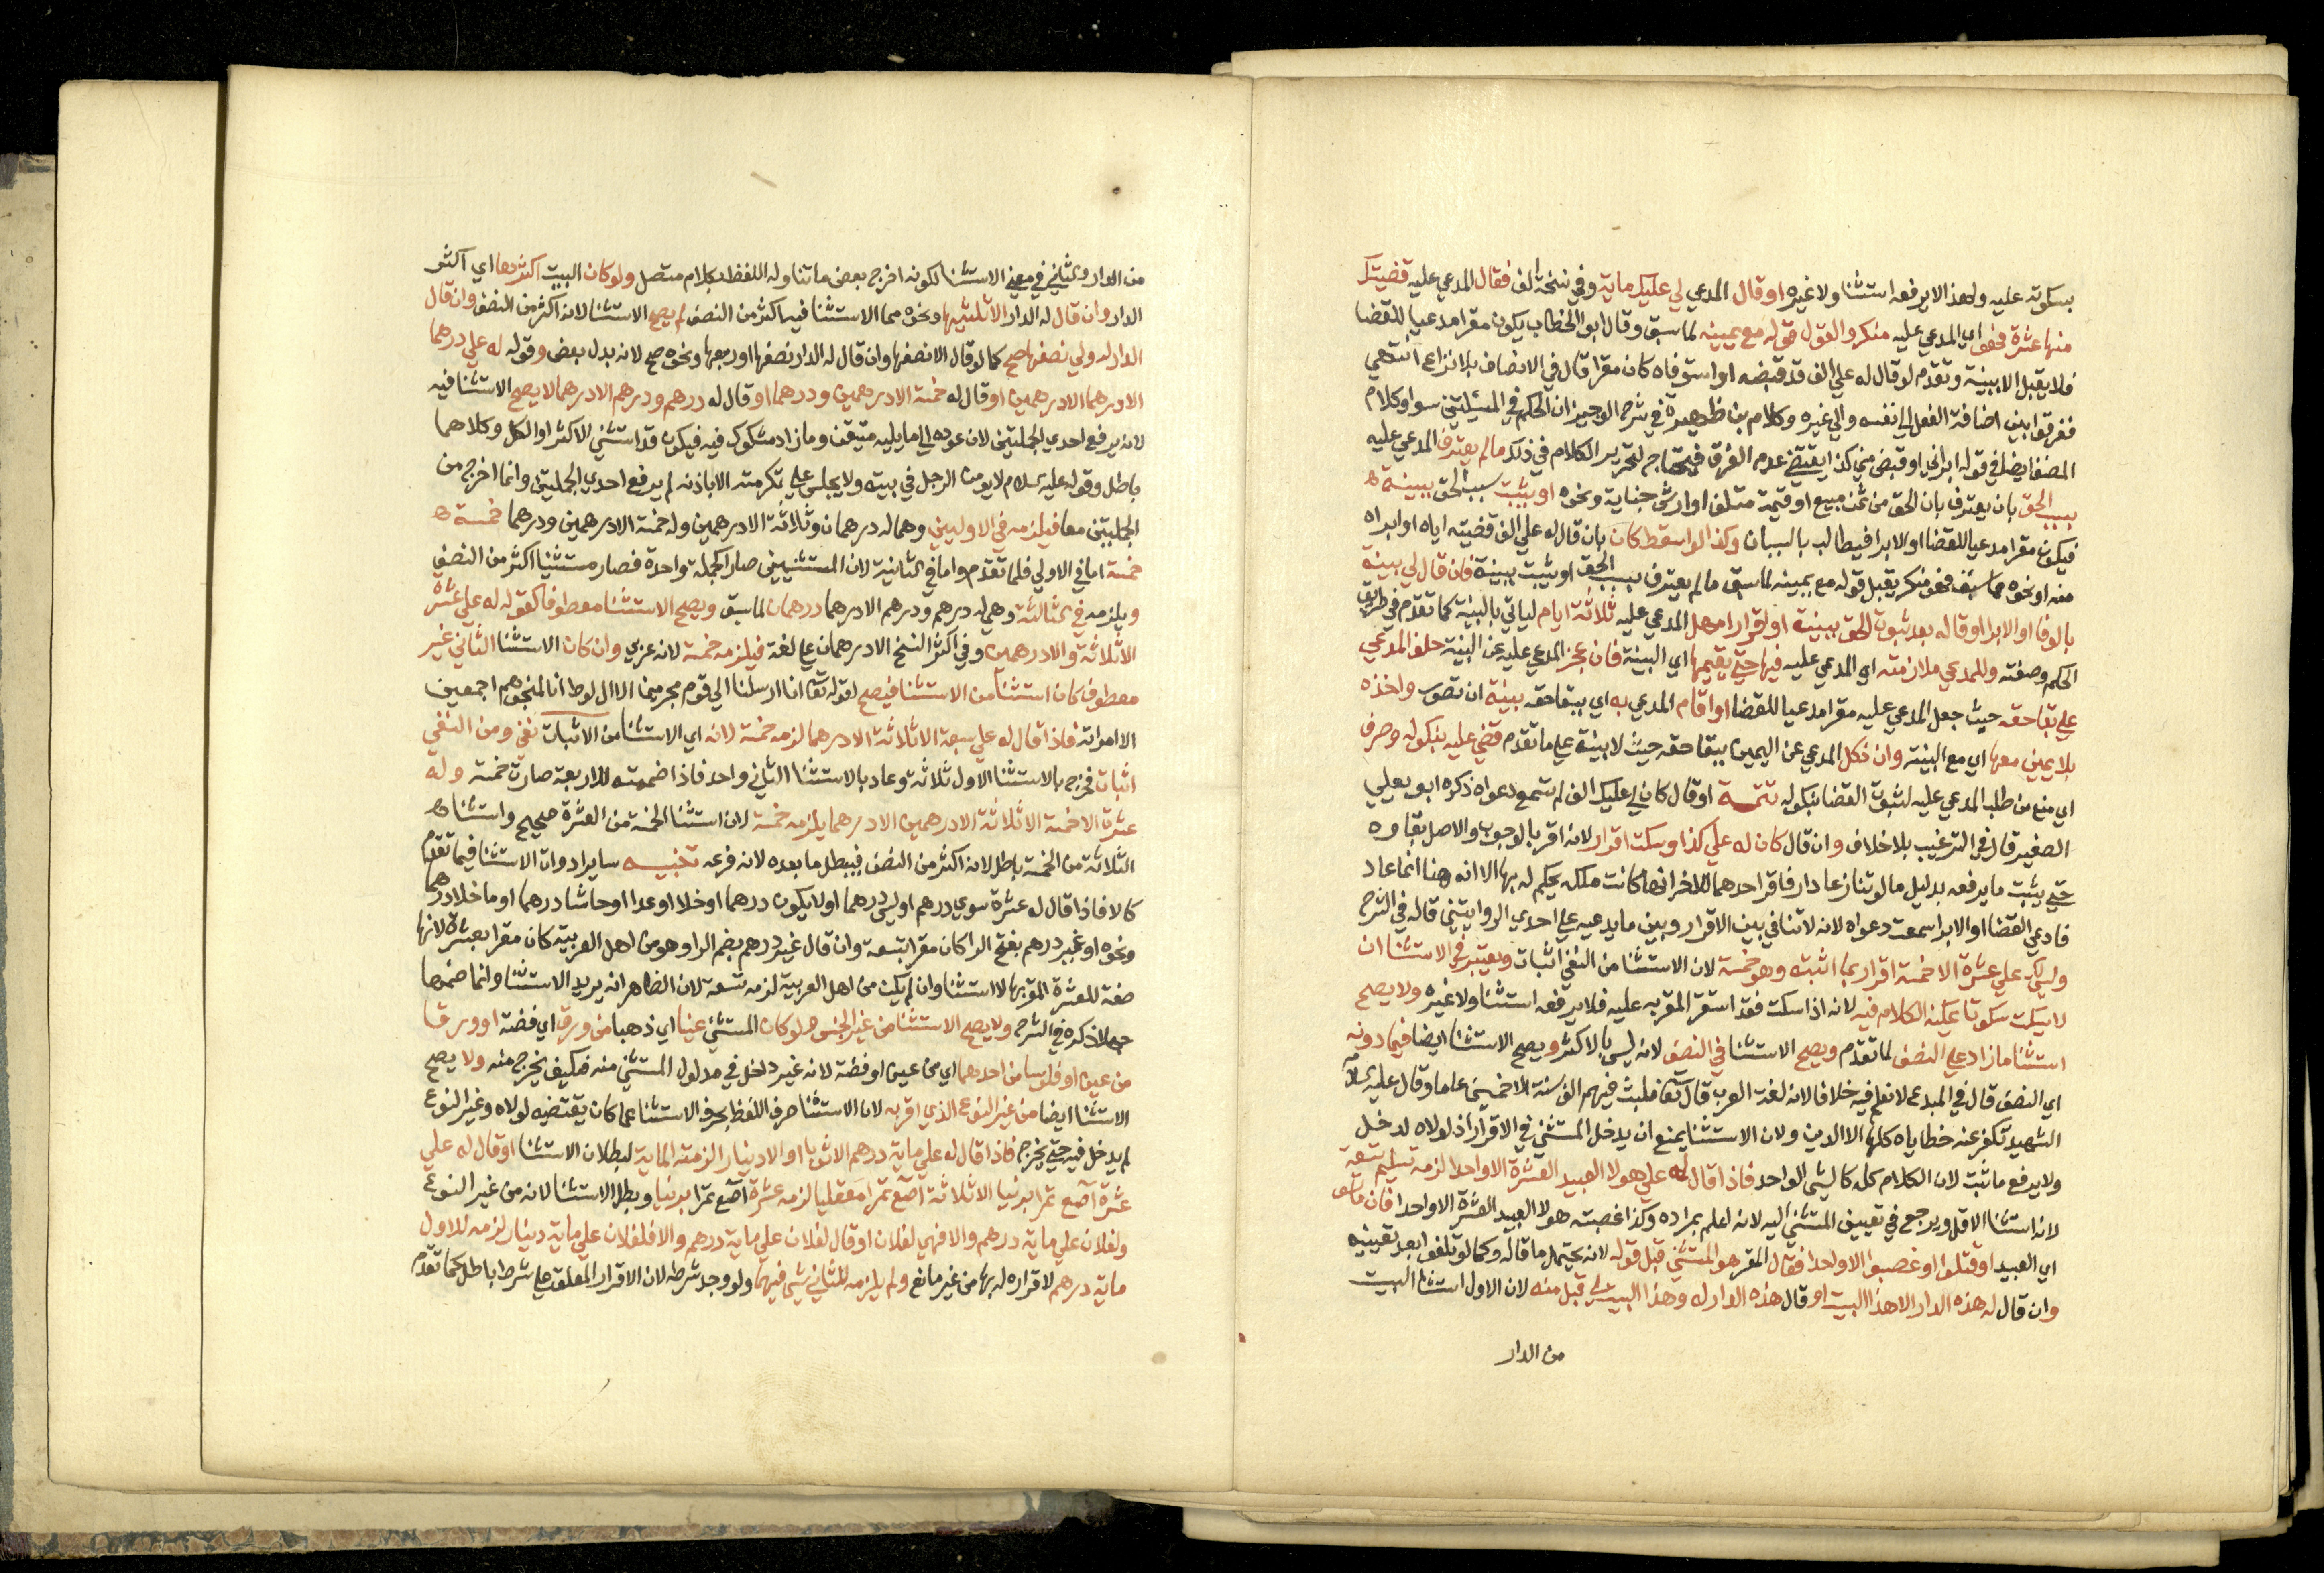 بسكوته عليه ولهذا لا يرفعه استثنا ولا غيره او قال المدعي لي عليك ماية وفي نسخة الف فقال المدعي عليه قضيتك
منها عشرة فهو اي المدعي عليه منكر والقول قوله مع يمينه لما سبق وقال ابو الخطاب يكون مقرا مدعيا للقضا
فلا يقبل الا ببينة وتقدم لو قال له علي الف قد قبضه او استوفاه كان مقرا قال في الانصاف بلا نزاع انتهي
ففرقوا بين اضافة الفعل الي نفسه والي غيره وكلام بن ظهيرة في شرح الوجيز ان الحكم في المسيلتين سوا وكلام
المصنف ايضا في قوله ابراني او قبض مني كذا يقتضي عدم الفرق فيحتاج لتحرير الكلام في ذلك ما لم يعترف المدعي عليه
بسبب الحق بان يعترف بان الحق من ثمن مبيع او قيمة متلف او ارش جناية ونحوه او يثبت سبب الحق ببينة
فيكون مقرا مدعيا للقضا او الابرا فيطالب بالبيان وكذا لو اسقط كان بان قال له علي الف قضيته اياه او ابراه
منه او نحوه مما سبق فهو منكر يقبل قوله مع يمينه لما سبق ما لم يعترف بسبب الحق او يثبت ببينة فان قال لي بينة
بالوفا او الابرا او قاله بعد ثبوت الحق ببينة او اقرار امهل المدعي عليه ثلاثة ايام لياتي بالبينة كما تقدم في طريق
الحكم وصفته وللمدعي ملازمته اي المدعي عليه فيها حتي يقيمها اي البينة فان عجز المدعي عليه عن البينة حلف المدعي
علي بقا حقه حيث جعل المدعي عليه مقرا مدعيا للقضا او اقام المدعي به اي ببقا حقه بينة ان تصور واخذه
بلا يمين معها اي مع البينة وان نكل المدعي عن اليمين ببقا حقه حيث لا بينة علي ما تقدم قضي عليه بنكوله وصرف
اي منع من طلب المدعي عليه لثبوت القضا بنكوله تتمة او قال كان لي عليك الف لم تسمع دعواه ذكره ابو يعلي
الصغير قال في الترغيب بلا خلاف وان قال كان له علي كذا وسكت اقرار لانه اقر بالوجوب والاصل بقاوه
حتي يثبت ما يرفعه بدليل ما لو تنازعا دارا فاقر احدهما للاخر انها كانت ملكه يحكم له بها الا انه هنا انما عاد
فادعي القضا او الابرا سمعت دعواه لانه لا تنافي بين الاقرار وبين ما يدعيه علي احدي الروايتين قاله في الشرح
وليلك علي عشرة الا خمسة اقرار بما اثبته وهو خمسة لان الاستثنا من النفي اثبات ويعتبر في الاستثنا ان
لا يسكت سكوتا يمكنه الكلام فيه لانه اذا سكت فقد استقر المقر به عليه فلا يرفعه استثنا ولا غيره ولا يصح
استثنا ما زاد علي النصف لما تقدم ويصح الاستثنا في النصف لانه ليس بالاكثر ويصح الاستثنا ايضا فيما دونه
اي النصف قال في المبدع لا نعلم فيه خلافا لانه لغة العرب قال تعالى فلبث فيهم الف سنة الا خمسين عاما وقال عليه السلام
الشهيد تكفر عنه خطاياه كلها الا الدين ولان الاستثنا يمنع ان يدخل المستثني في الاقرار اذ لولاه لدخل
ولا يرفع ما ثبت لان الكلام كله كالشي الواحد فاذا قال له علي هولا العبيد العشرة الا واحدا لزمه تسليم تسعة
لانه استثنا الاقل ويرجع في تعيين المستثني اليه لانه اعلم بمراده وكذا غصبته هولا العبيد العشرة الا واحدا فان ماتوا
اي العبيد او قتلوا او غصبوا الا واحدا فقال المقر هو المستثني قبل قوله لانه يحتمل ما قاله وكما لو تلفوا بعد تعيينه
وان قال له هذه الدار الا هذا البيت او قال هذه الدار له وهذا البيت لي قبل منه لان الاول استثنا البيت
من الدار
من الدار والثاني في معني الاستثنا لكونه اخرج بعض ما تناوله اللفظ بكلام متصل ولو كان البيت اكثرها اي اكثر
الدار وان قال له الدار الا ثلثيها ونحوه مما الاستثنا فيه اكثر من النصف لم يصح الاستثنا لانه اكثر من النصف وان قال
الدار له ولي نصفها صح كما لو قال الا نصفها وان قال له الدار نصفها او ربعها ونحوه صح لانه بدل بعض وقوله له علي درهما
الا درهما الا درهمين او قال له خمسة الا درهمين ودرهما او قال له درهم ودرهم الا درهما لا يصح الاستثنا فيه
لانه يرفع احدي الجملتين لان عوده الي ما يليه متيقن وما زاد مشكوك فيه فيكون قد استثني الاكثر او الكل وكلاهما
باطل وقوله عليه السلام لا يومن الرجل في بيته ولا يجلس علي تكرمته الا باذنه لم يرفع احدي الجملتين وانما اخرج من
الجملتين معا فيلزمه في الاوليين وهما له درهمان وثلاثة الا درهمين وله خمسة الا درهمين ودرهما خمسة
خمسة اما في الاولي فلما تقدم واما في الثانية لان المستثنيين صارا كجملة واحدة فصار مستثنيا اكثر من النصف
ويلزمه في الثالثة وهي له درهم ودرهم الا درهما درهمان لما سبق ويصح الاستثنا معطوفا كقوله له علي عشرة
الا ثلاثة والا درهمين وفي اكثر النسخ الا درهمان علي لغة فيلزمه خمسة لانه عربي وان كان الاستثنا الثاني غير
معطوف كان استثنا من الاستثنا فيصح لقوله تعالى انا ارسلنا الي قوم مجرمين الا ال لوط انا لمنجوهم اجمعين
الا امراته فاذا قال له علي سبعة الا ثلاثة الا درهما لزمه خمسة لانه اي الاستثنا من الاثبات نفي ومن النفي
اثبات فخرج بالاستثنا الاول ثلاثة وعاد بالاستثنا الثاني واحد فاذا ضممته للاربعة صارت خمسة وله
عشرة الا خمسة الا ثلاثة الا درهمين الا درهما يلزمه خمسة لان استثنا الخمسة من العشرة صحيح واستثنا
الثلاثة من الخمسة باطل لانه اكثر من النصف فيبطل ما بعده لانه فرعه تنبيه ساير ادوات الاستثنا فيما تقدم
كالا فاذا قال له عشرة سوي درهم او ليس درهما او لا يكون درهما او خلا او عدا او حاشا درهما او ما خلا درهما
ونحوه او غير درهم بفتح الرا كان مقرا بتسعة وان قال غير درهم بضم الرا وهو من اهل العربية كان مقرا بعشرة لانها
صفة للعشرة المقر بها لا استثنا وان لم يكن من اهل العربية لزمه تسعة لان الظاهر انه يريد الاستثنا وانما ضمها
جهلا ذكره في الشرح ولا يصح الاستثنا من غير الجنس ولو كان المستثني عينا اي ذهبا من ورق اي فضة او ورقا
من عين او فلوسا من احدهما اي من عين او فضة لانه غير داخل في مدلول المستثني منه فكيف يخرج منه ولا يصح
الاستثنا ايضا من غير النوع الذي اقر به لان الاستثنا صرف اللفظ بحرف الاستثنا عما كان يقتضيه لولاه وغير النوع
لم يدخل فيه حتي يخرج فاذا قال له علي ماية درهم الا ثوبا او الا دينارا لزمته الماية لبطلان الاستثنا او قال له علي
عشرة آصع تمرا برنيا الا ثلاثة آصع تمرا معقليا لزمه عشرة آصع تمرا برنيا وبطل الاستثنا لانه من غير النوع
ولفلان علي ماية درهم والا فهي لفلان او قال لفلان علي ماية درهم والا فلفلان علي ماية دينار لزمه للاول
ماية درهم لاقراره له بها من غير مانع ولم يلزمه للثاني شي فيهما ولو وجد شرطه لان الاقرار المعلق علي شرط باطل كما تقدم